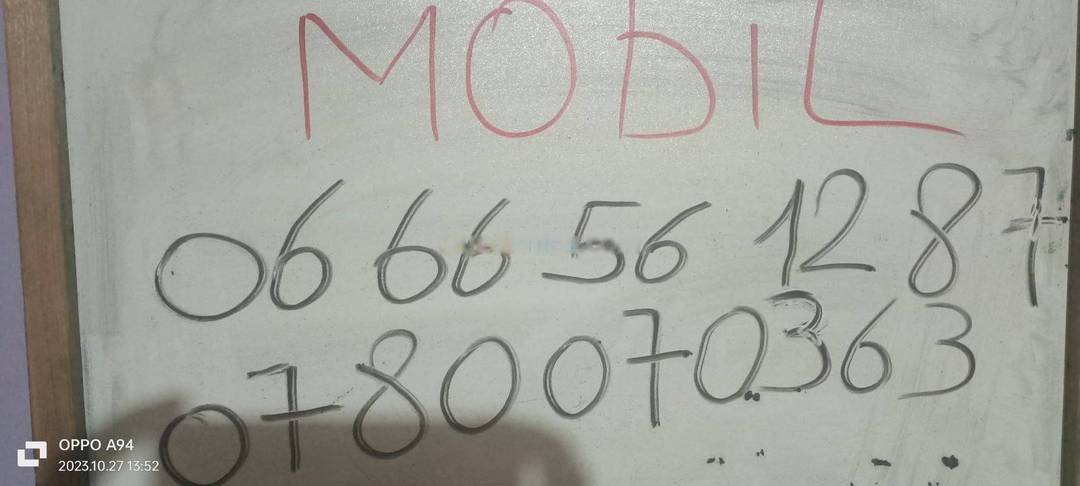 MObIL
06 66 56 12 87
0780070363
OPPO A94
2023.10.27 13:52